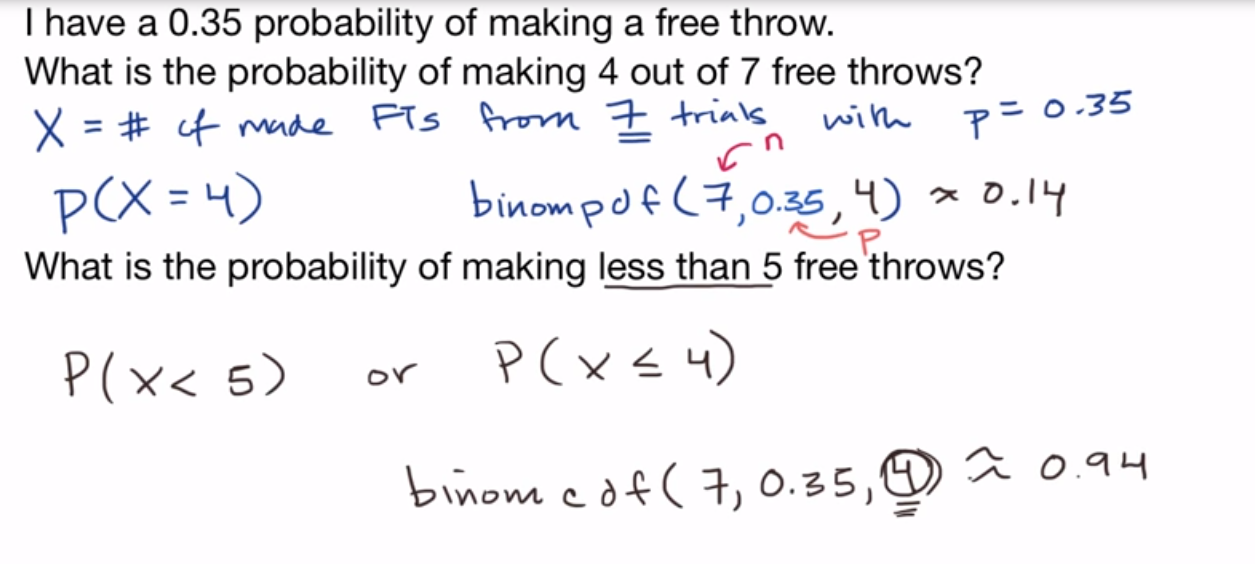 I have a 0.35 probability of making a free throw.
What is the probability of making 4 out of 7 free throws?
X = # of made FTs from 7 trials with p = 0.35
n
P(X = 4) binompdf(7,0.35,4) ≈ 0.14
P
What is the probability of making less than 5 free throws?
P(x < 5) or P(x ≤ 4)
binomcdf(7, 0.35, 4) ≈ 0.94